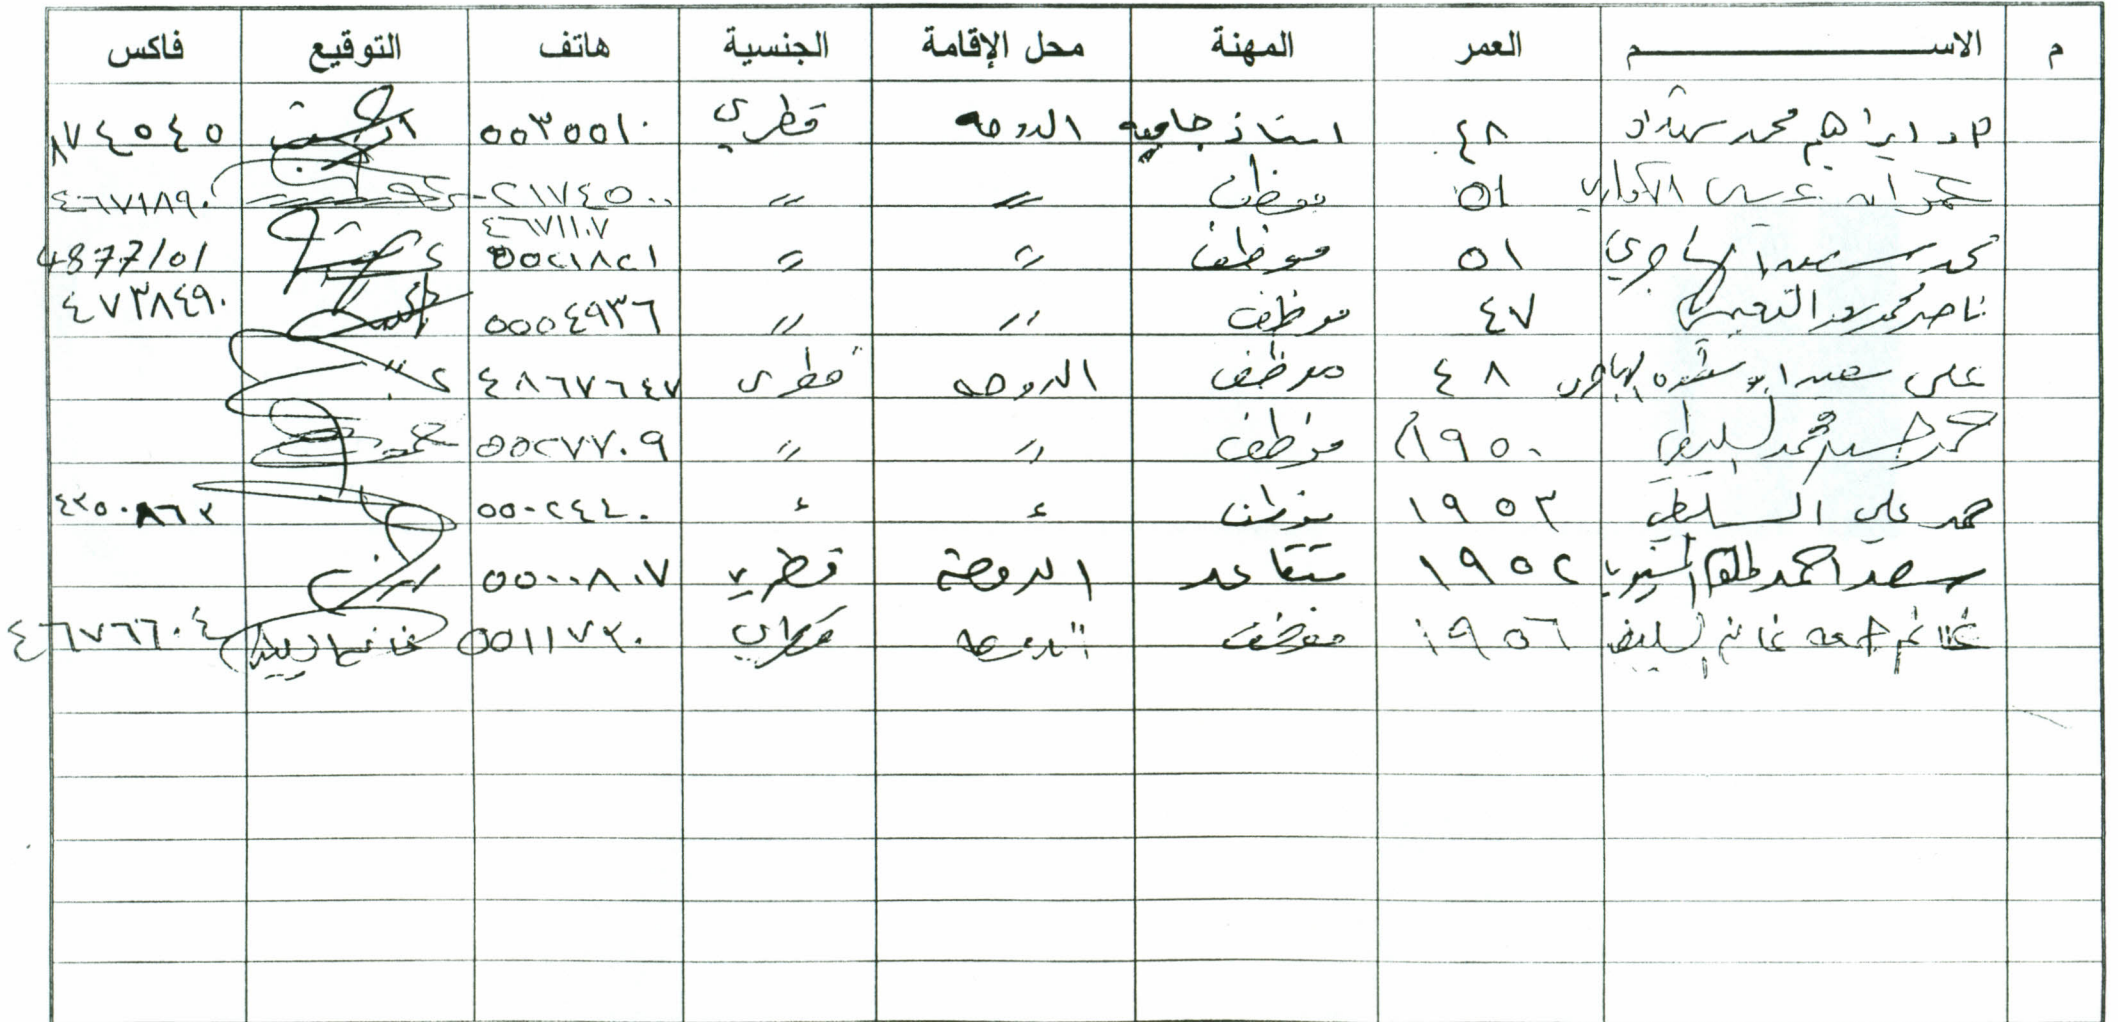 م الاســـــــــــم العمر المهنة محل الإقامة الجنسية هاتف التوقيع فاكس
د ابراهيم محمد ٤٨ استاذ جامعه الدوحه قطري ٥٥٣٥٥١٠ ٨٧٤٥٤٥
عيسى الكواري ٥١ موظف // // ٢١٧٤٥٠٠ ٤٦٧١٨٩٠
٤٦٧١١٠٧
محمد سعيد الهاجري ٥١ موظف // // ٥٥٢١٨٢١ 4877101
ناصر محمد النعيمي ٤٧ موظف // // ٥٥٥٤٩٣٦ ٤٧٣٨٤٩٠
علي سعيد الهاجري ٤٨ موظف الدوحه قطرى ٤٨٦٧٦٤٧
حمد محمد السليطي ١٩٥٠م موظف // // ٥٥٢٧٧٠٩
حمد علي السليطي ١٩٥٣ موظف ء ء ٥٥٠٢٤٤٠ ٨٦٢
سعد احمد ١٩٥٢ متقاعد الدوحة قطري ٥٥٠٠٨٠٧
غانم جمعه غانم السليطي ١٩٥٦ موظف الدوحه قطري ٥٥١١٧٣٠ ٤٦٧٦٦٠٤